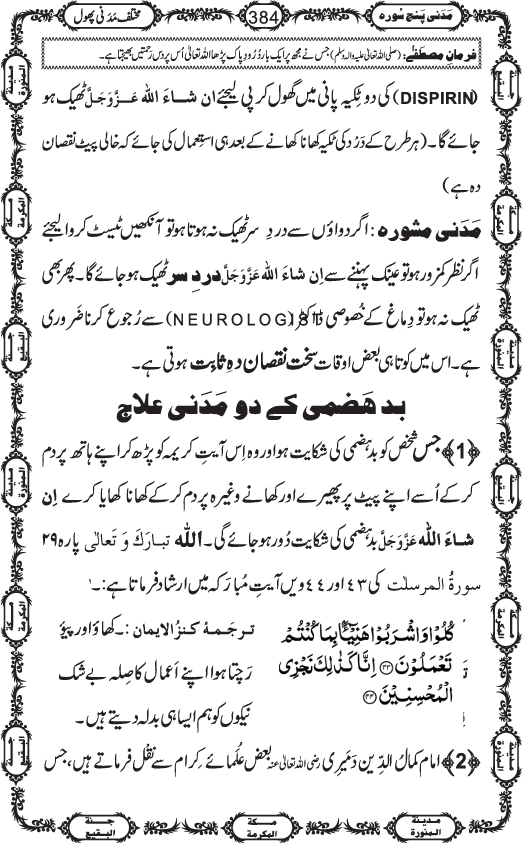 مَدَنی پنج سُورہ
384
مختلف مَدَنی پھول
فرمانِ مصطفٰے: (صلی اللہ تعالیٰ علیہ والہٖ وسلّم) جس نے مجھ پر ایک بار دُرُودِ پاک پڑھا اللہ تعالیٰ اُس پر دس رحمتیں بھیجتا ہے۔
(DISPIRIN) کی دو ٹکیہ پانی میں گھول کر پی لیجئے ان شاءَ اللہ عَزَّوَجَلَّ ٹھیک ہو
جائے گا۔ (ہر طرح کے دَرْد کی ٹکیہ کھانا کھانے کے بعد ہی استِعمال کی جائے کہ خالی پیٹ نقصان
دہ ہے)
مَدَنی مشورہ : اگر دواؤں سے دردِ سر ٹھیک نہ ہوتا ہو تو آنکھیں ٹیسٹ کروا لیجئے
اگر نظر کمزور ہو تو عینک پہننے سے اِن شاءَ اللہ عَزَّوَجَلَّ دردِ سر ٹھیک ہو جائے گا۔ پھر بھی
ٹھیک نہ ہو تو دِماغ کے خُصوصی ڈاکٹر (NEUROLOGIST) سے رُجوع کرنا ضَروری
ہے۔ اس میں کوتاہی بعض اوقات سخت نقصان دہ ثابت ہوتی ہے۔
بد ہَضمی کے دو مَدَنی علاج
﴿1﴾ جس شخص کو بد ہضمی کی شکایت ہو اور وہ اِس آیتِ کریمہ کو پڑھ کر اپنے ہاتھ پر دم
کر کے اُسے اپنے پیٹ پر پھیرے اور کھانے وغیرہ پر دم کر کے کھانا کھایا کرے اِن
شاءَ اللہ عَزَّوَجَلَّ بد ہَضمی کی شکایت دُور ہو جائے گی۔ اللہ تبارَکَ وَ تَعالٰی پارہ ۲۹
سورۃُ المرسلٰت کی ۴۳ اور ۴۴ ویں آیتِ مُبارَکہ میں ارشاد فرماتا ہے:۔
كُلُوْا وَاشْرَبُوْا هَنِيْٓـًٔۢا بِمَا كُنْتُمْ
تَعْمَلُوْنَ ﴿۴۳﴾ اِنَّا كَذٰلِكَ نَجْزِی
الْمُحْسِنِيْنَ ﴿۴۴﴾
ترجَمۂ کنزالایمان :۔ کھاؤ اور پیؤ
رَچتا ہوا اپنے اَعمال کا صِلہ بے شک
نیکوں کو ہم ایسا ہی بدلہ دیتے ہیں۔
﴿2﴾ امام کمالُ الدِّین دَمِیری رضی اللہ تعالیٰ عنہ بعض عُلَمائے کِرام سے نقل فرماتے ہیں، جس
مدینۃ المنورۃ
مکۃ المکرمۃ
جنۃ البقیع